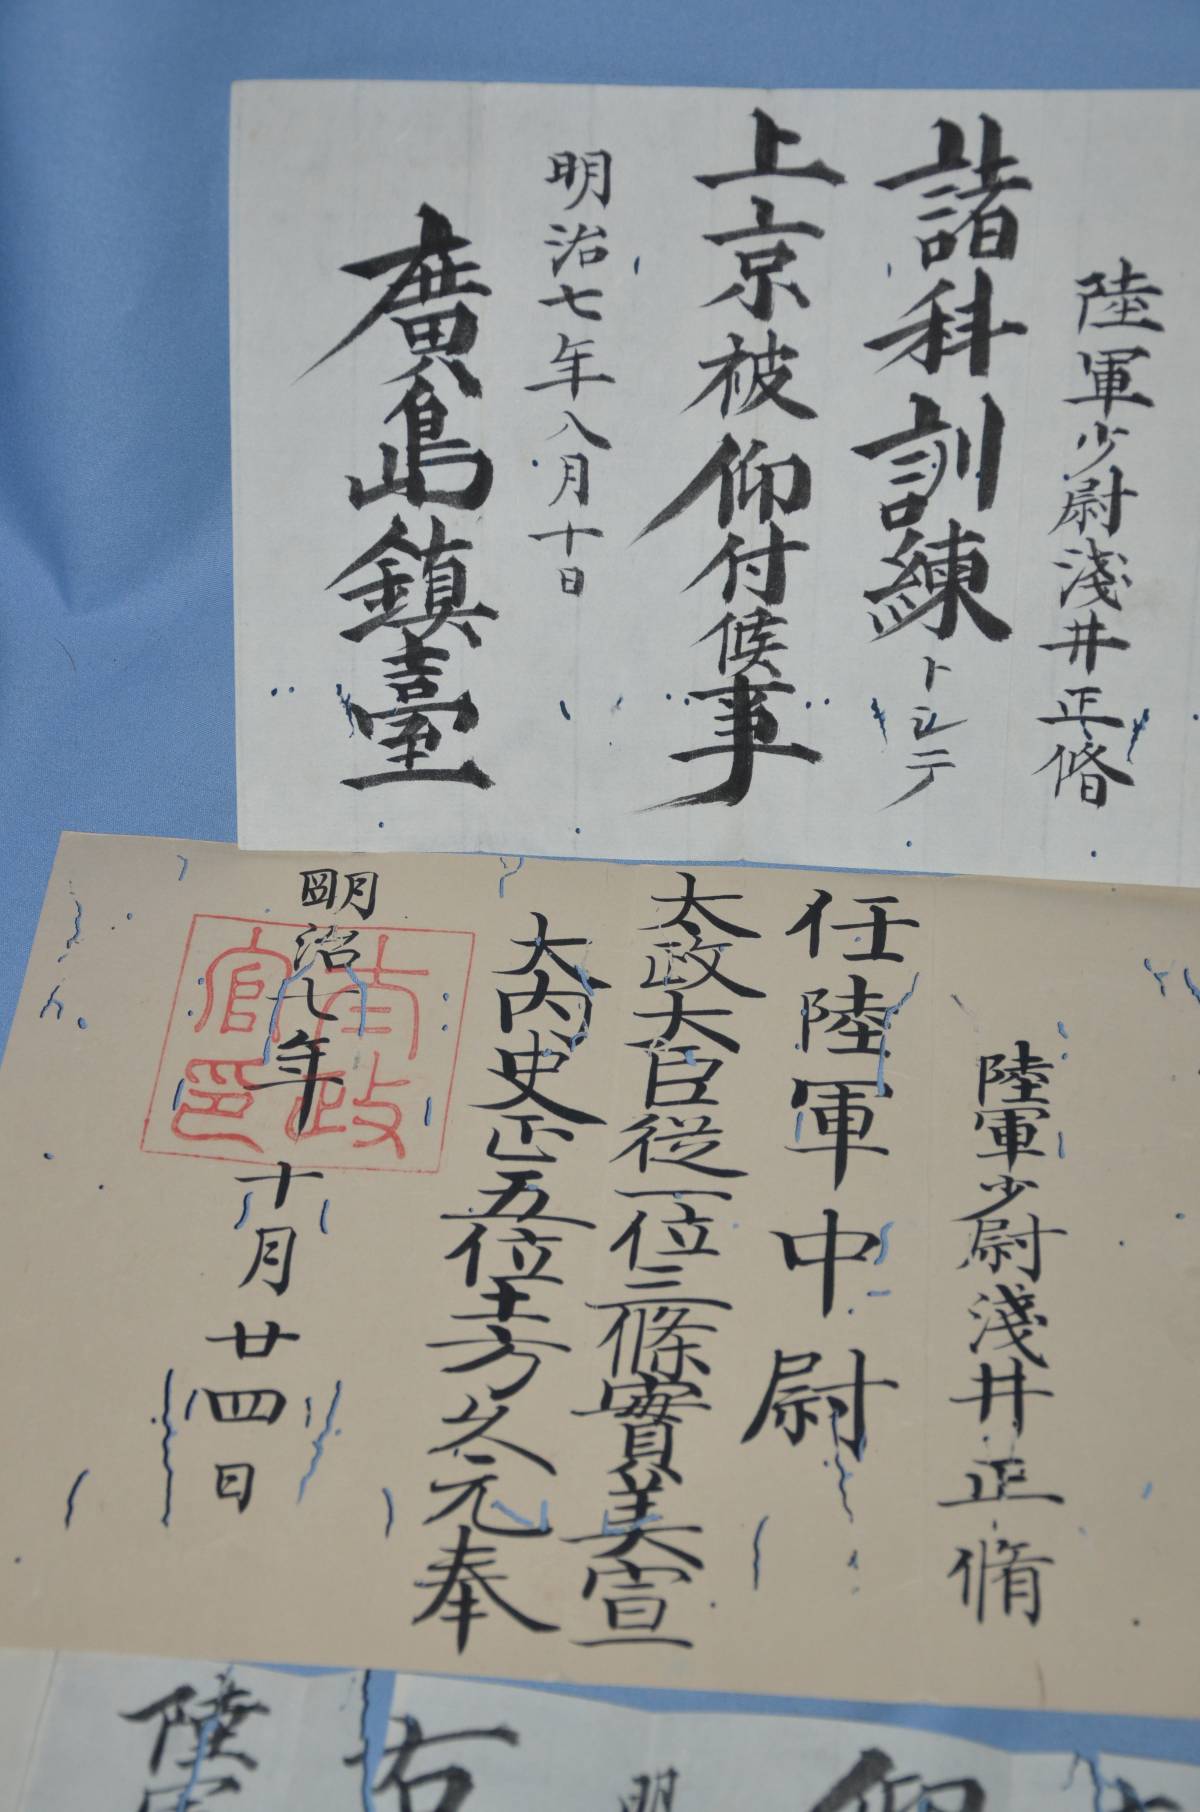 陸軍少尉淺井正脩
諸科訓練トシテ
上京被仰付候事
明治七年八月十日
廣島鎮臺
陸軍少尉淺井正脩
任陸軍中尉
太政大臣從一位三條實美宣
大内史正五位土方久元奉
明治七年十月廿四日
太政
官印
仰
明
右
陸軍